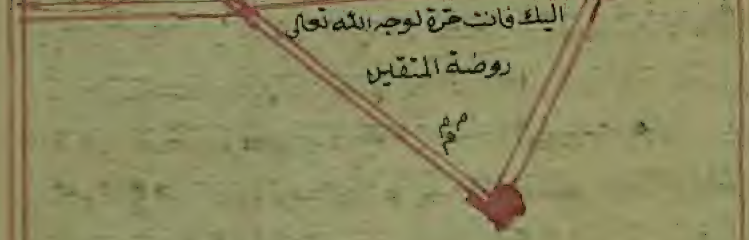 اليك فانت حرة لوجه الله تعالى
روضة المتقين
م م م